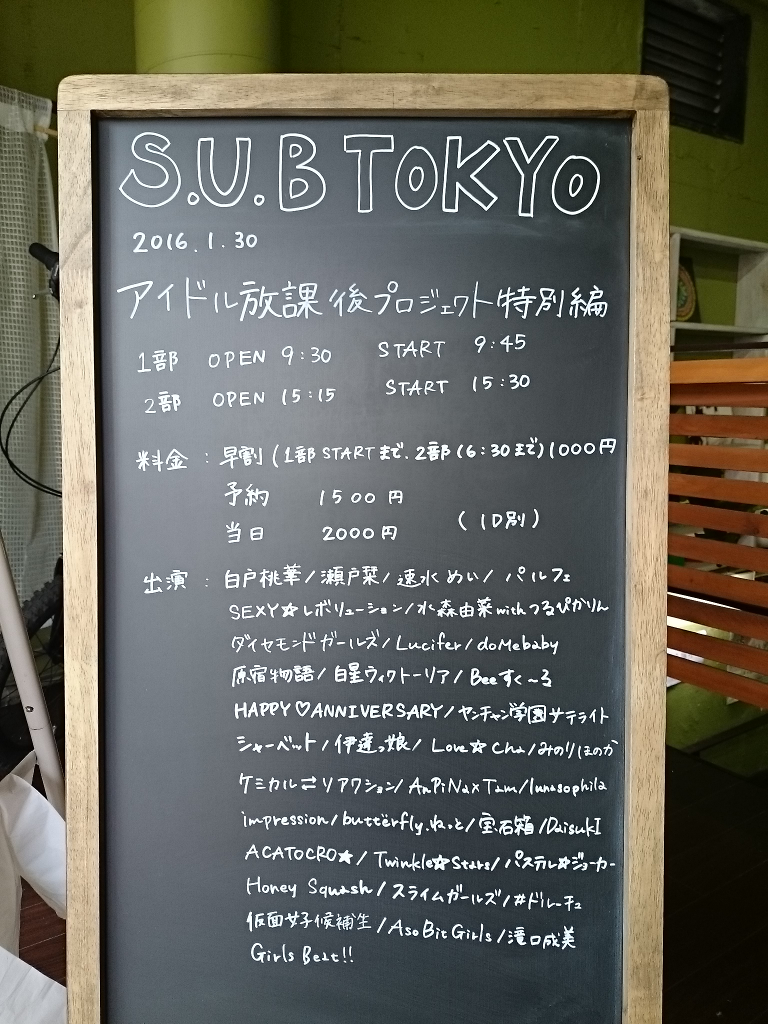 S.U.B TOKYO
2016.1.30
アイドル放課後プロジェクト特別編
1部 OPEN 9:30 START 9:45
2部 OPEN 15:15 START 15:30
料金 : 早割 (1部 STARTまで. 2部 16:30まで) 1000円
予約 1500円
当日 2000円 (1D別)
出演 : 白戸桃華/瀬戸栞/速水めい/パルフェ
SEXY☆レボリューション/水森由菜withつるぴかりん
ダイヤモンドガールズ/Lucifer/doMebaby
原宿物語/白星ヴィクトーリア/Beeすく~る
HAPPY♡ANNIVERSARY/ヤンチャン学園サテライト
シャーベット/伊達っ娘/Love☆Cha/みのりほのか
ケミカル⇄リアクション/AnPiNa×Tam/lunasophila
impression/butterfly.ねっと/宝石箱/DaisukI
ACATOCRO★/Twinkle☆Stars/パステル☆ジョーカー
Honey Squash/スライムガールズ/#ドルーチェ
仮面女子候補生/AsoBitGirls/滝口成美
Girls Beat!!